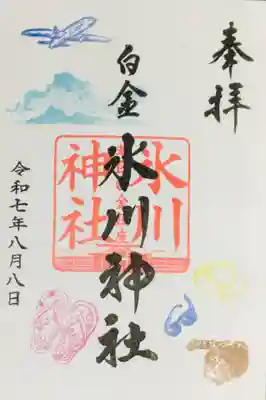 奉拝
白金
氷川神社
氷川
神社
令和七年八月八日